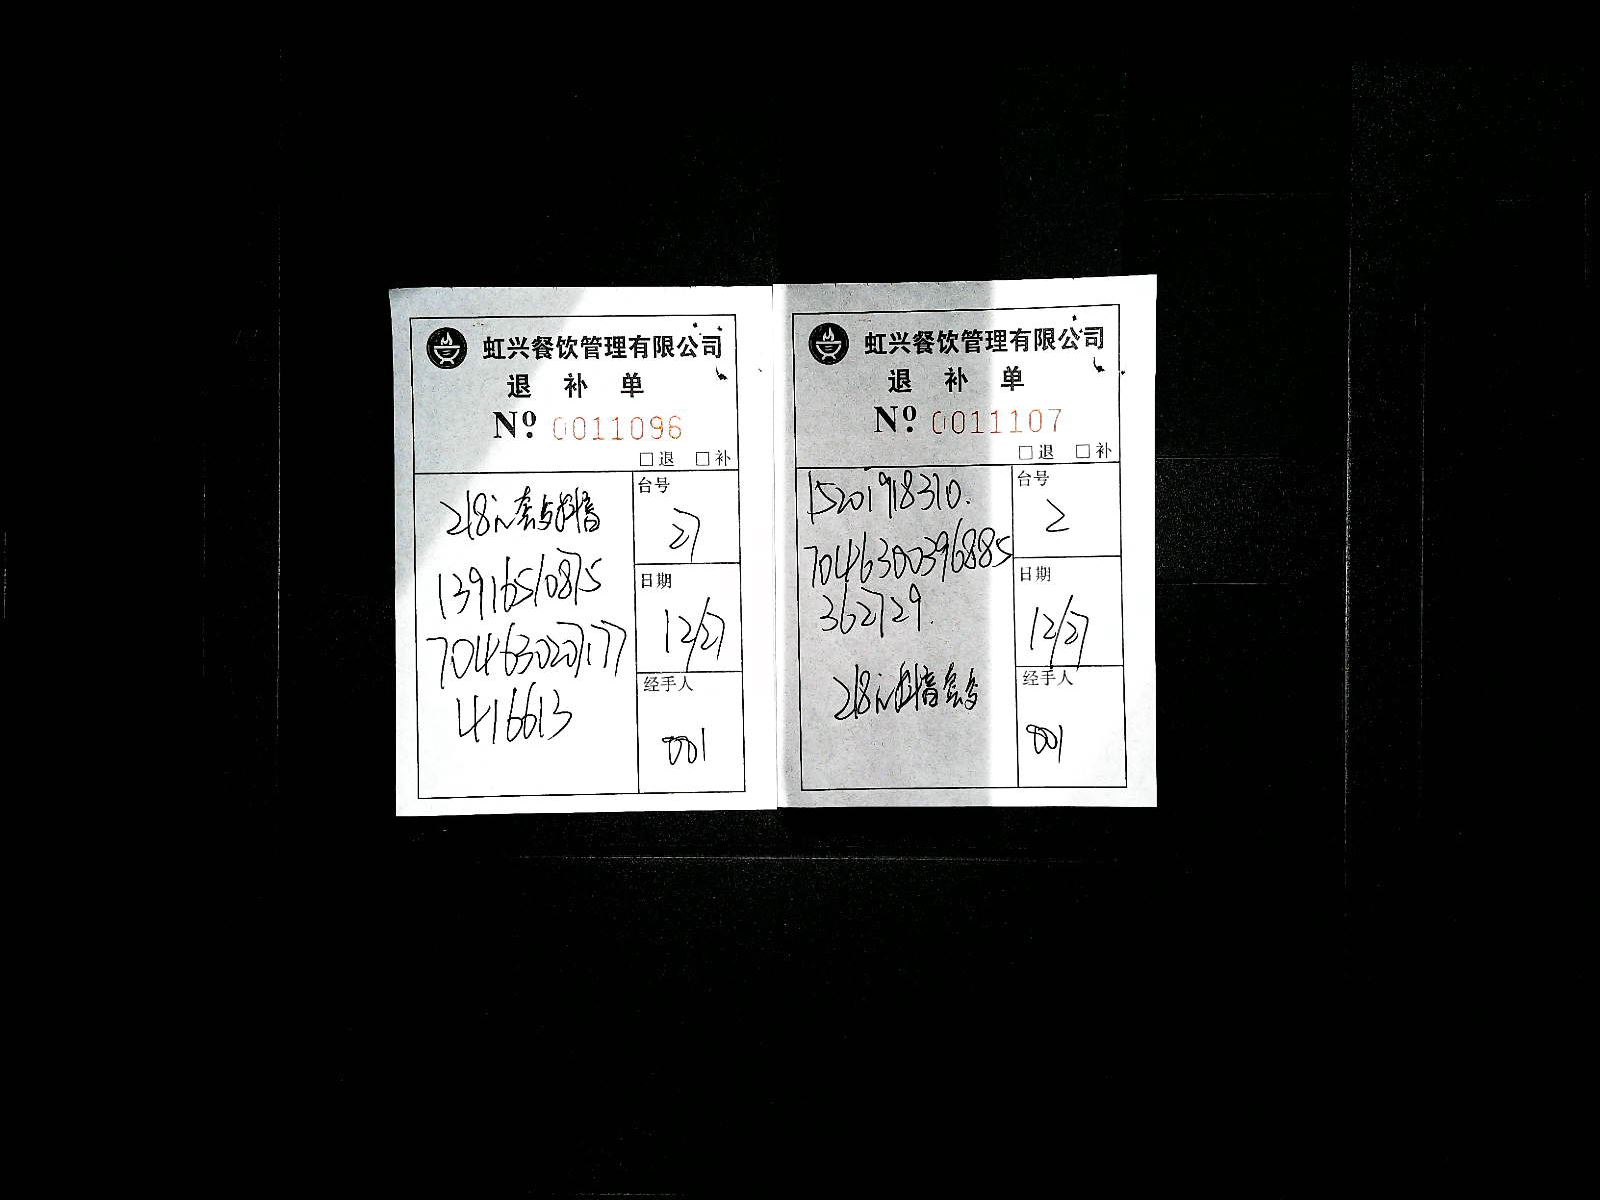 虹兴餐饮管理有限公司
退 补 单
Nº. 0011096
□退 □补
218元套与抖音
13916510875
7046302077177
416613
台号
27
日期
12/27
经手人
001
虹兴餐饮管理有限公司
退 补 单
Nº. 0011107
□退 □补
15201918310.
7046300396885
362729.
218元抖音套与
台号
2
日期
12/27
经手人
001